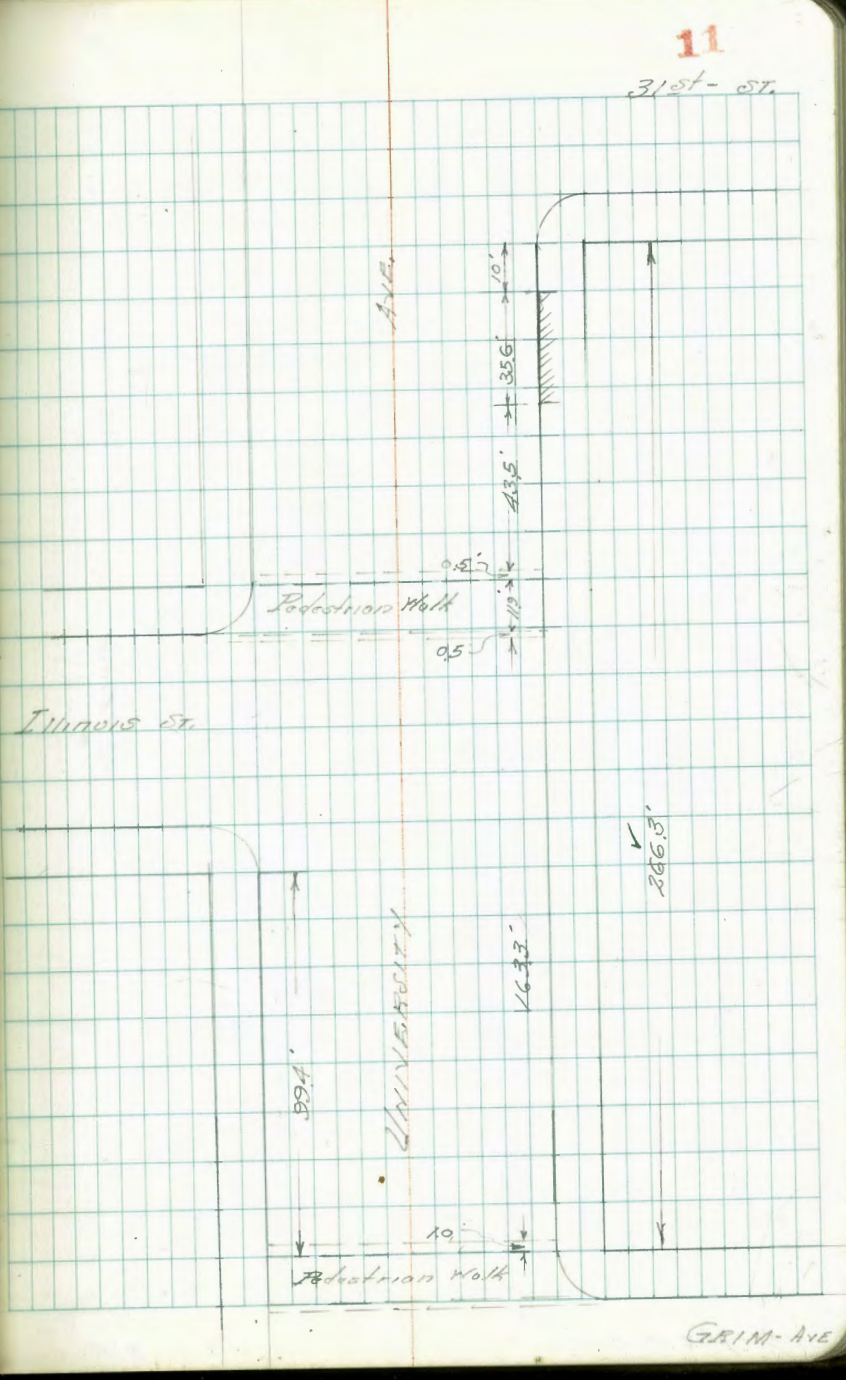 11
31st - ST.
AVE.
10'
35.6'
43.5'
0.5'
Pedestrian Walk
11.9'
0.5
Illinois St.
266.3'
163.3'
UNIVERSITY
99.4'
1.0
Pedestrian Walk
GRIM - AVE